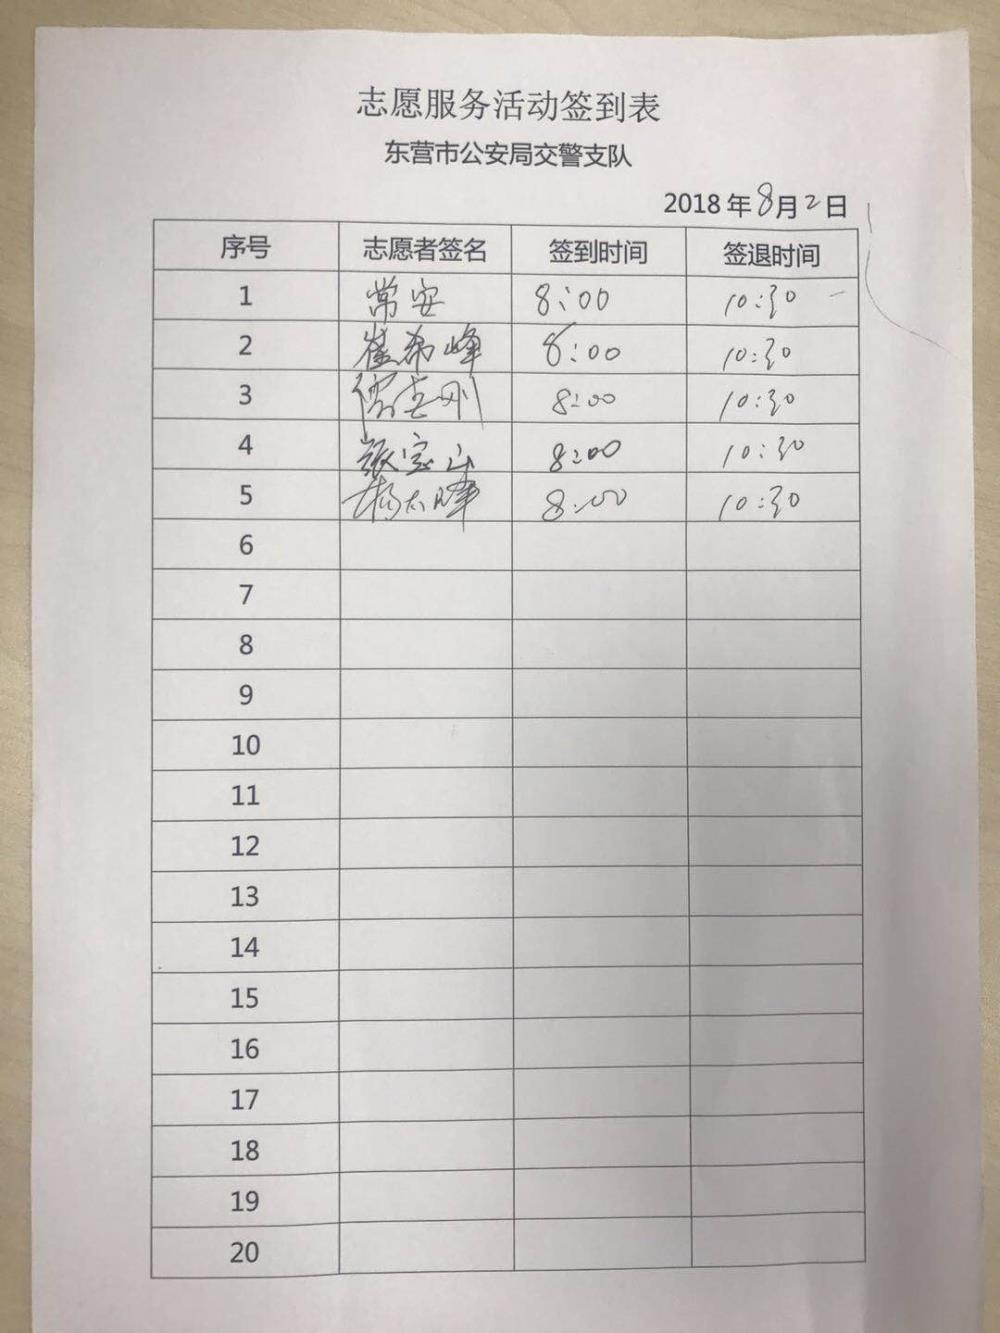 志愿服务活动签到表
东营市公安局交警支队
2018年8月2日
序号 志愿者签名 签到时间 签退时间
1 常安 8:00 10:30
2 崔希峰 8:00 10:30
3 8:00 10:30
4 张宝山 8:00 10:30
5 杨太峰 8:00 10:30
6
7
8
9
10
11
12
13
14
15
16
17
18
19
20